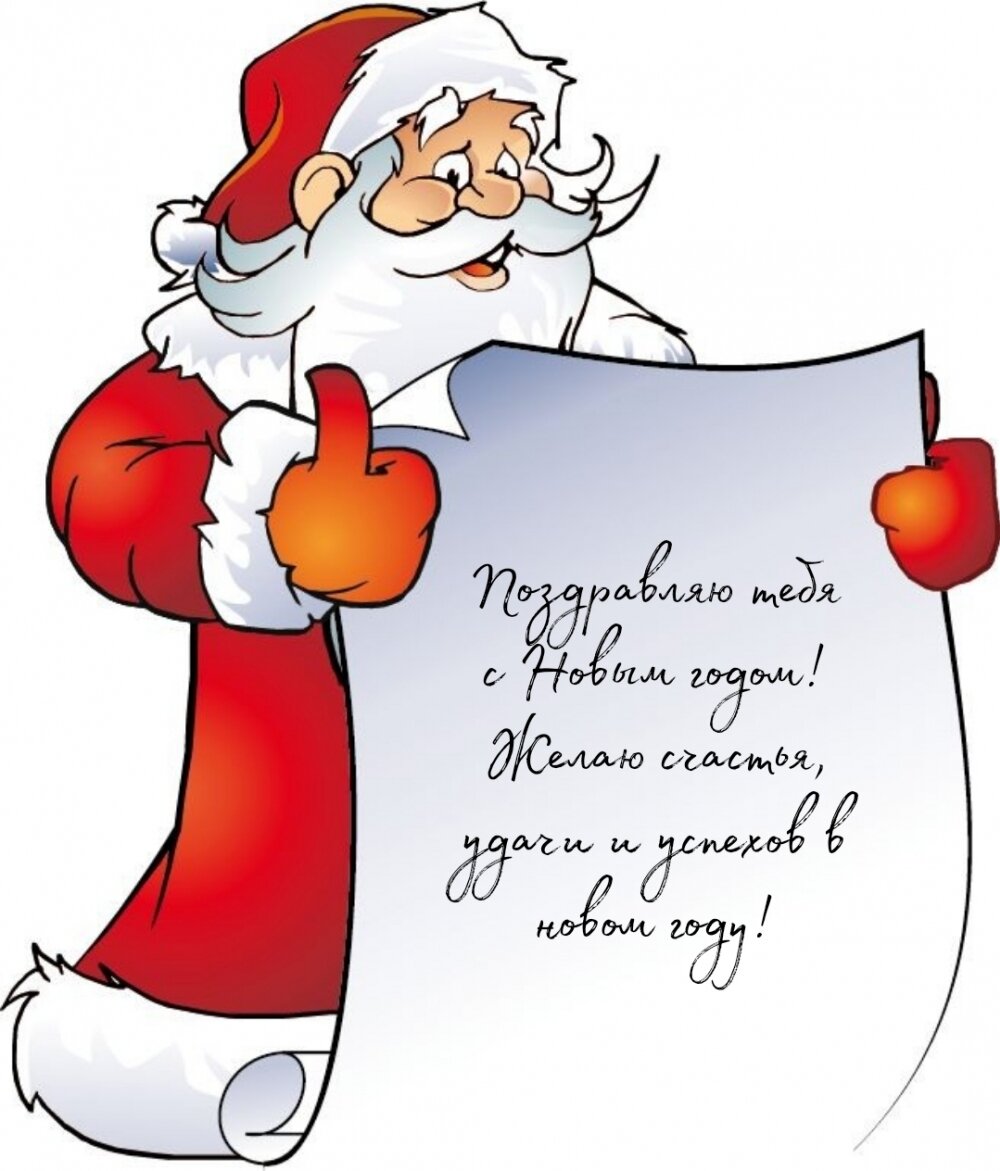 Поздравляю тебя
с Новым годом!
Желаю счастья,
удачи и успехов в
новом году!